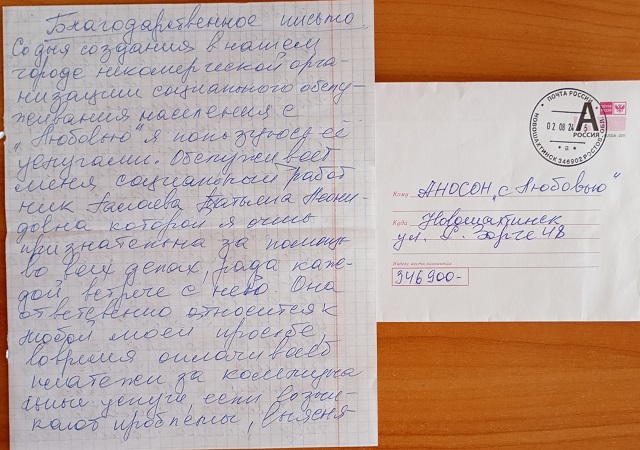 Благодарственное письмо.
Со дня создания в нашем
городе некомерческой орга-
низации социального обслу-
живания населения с
„Любовью" я пользуюсь её
услугами. Обслуживает
меня социальный работ
ник Татьяна Леони-
довна которой я очень
признательна за помощь
во всех делах, рада каж-
дой встрече с нею. Она
ответственно относится к
любой моей просьбе,
вовремя оплачивает
платежи за коммуна
льные услуги, если возни-
кают проблемы, выясня
ПОЧТА РОССИИ
02 08 24
НОВОШАХТИНСК 346902 РОСТОВ. ОБЛ.
А
РОССИЯ
Кому АНОСОН „с Любовью"
Куда Новошахтинск
ул. Р. Зорге 48
346900-